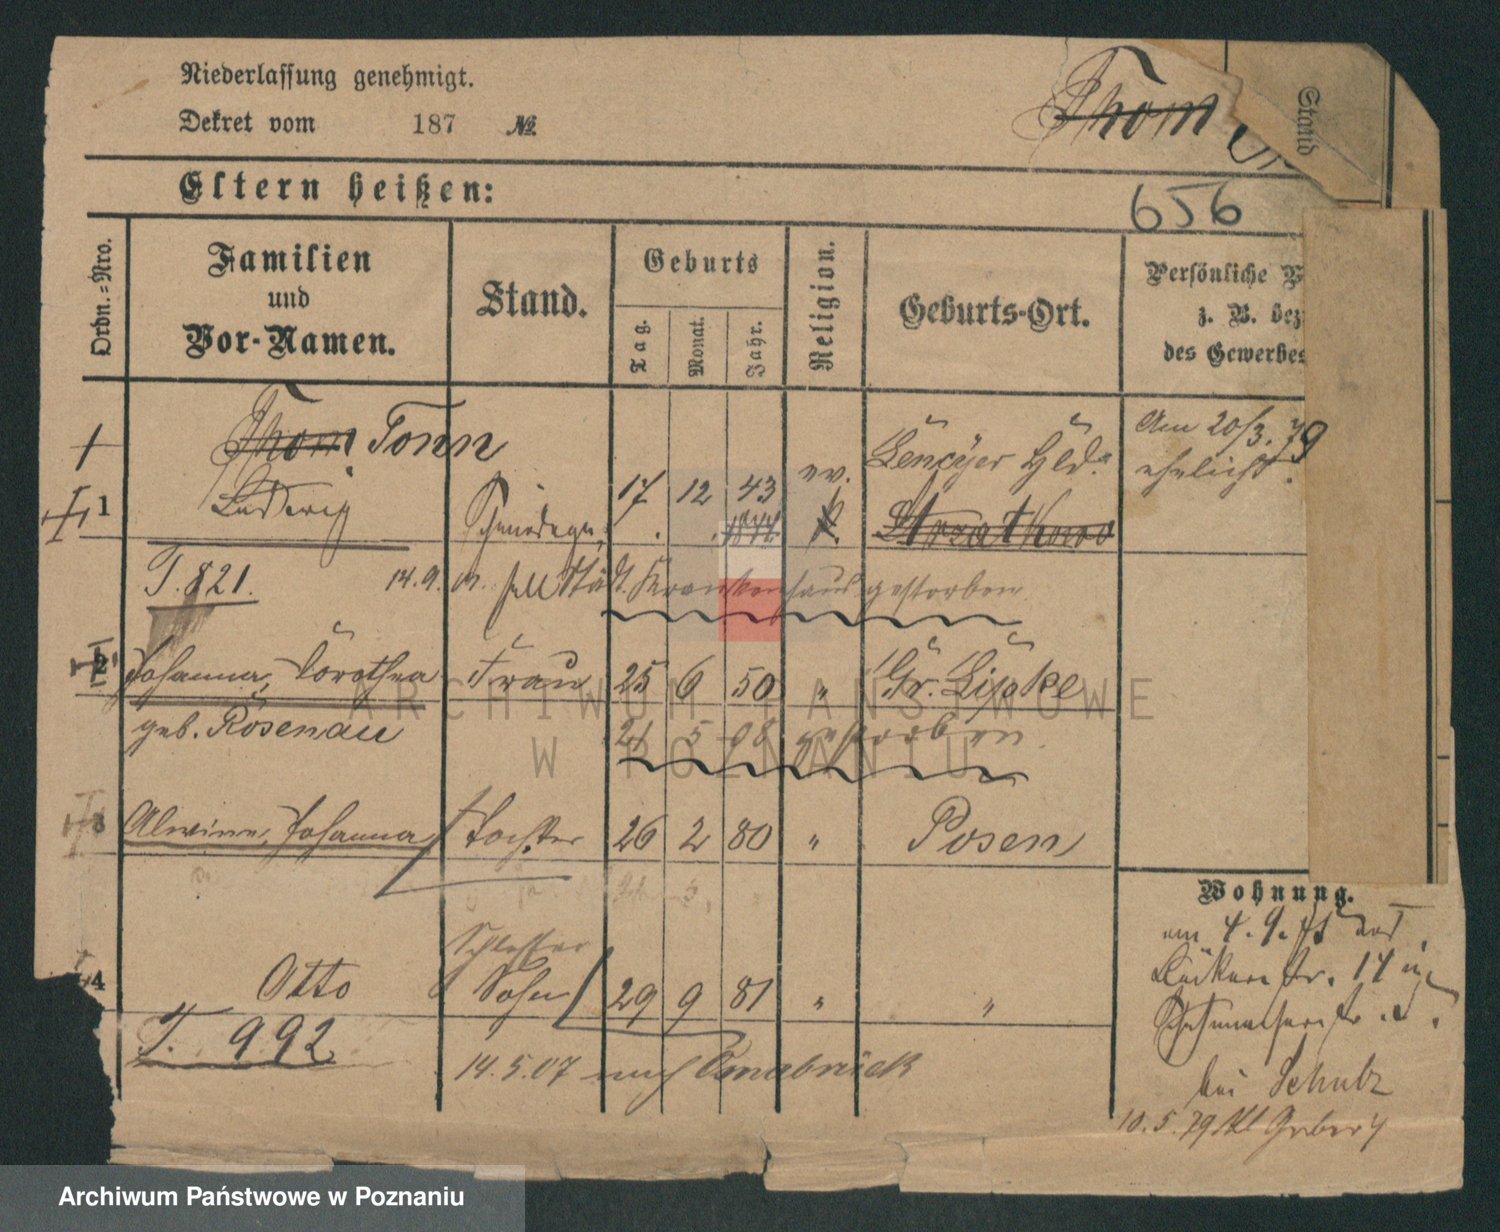 Niederlassung genehmigt.
Dekret vom 187 №
Thom
Stand
Eltern heißen:
656
Ordn.-Nro.
Familien
und
Vor-Namen.
Stand.
Geburts
Tag.
Monat.
Jahr.
Religion.
Geburts-Ort.
Persönliche
z. B.
des Gewerbes
Thom Tonn
Ludwig
1
17 12 43
1844
ev.
Hld.
Strzalkowo
Am 20/3. 79
ehelicht.
T. 821.
14. 9. Städt. Krankenhaus gestorben
2
Johanna, Dorothea
geb. Rosenau
Frau
25 6 50 "
Gr. Lipke
21 5 98 gestorben
3
Alwine, Johanna
Tochter
26 2 80 "
Posen
4
Otto
Schlosser
Sohn
29 9 81 " "
T. 992
14. 5. 07 nach Osnabrück
Wohnung.
am 4. 9.
14
bei Schulz
10. 5. 79
ARCHIWUM PAŃSTWOWE
W POZNANIU
Archiwum Państwowe w Poznaniu